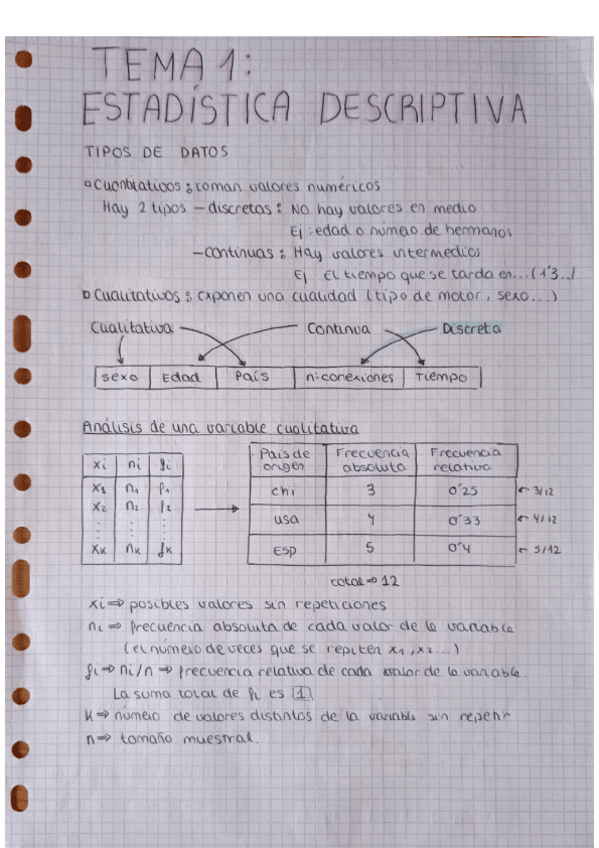 TEMA 1:
ESTADÍSTICA DESCRIPTIVA
TIPOS DE DATOS
Cuantitativos: toman valores numéricos
Hay 2 tipos - discretas: No hay valores en medio
Ej: edad o número de hermanos
- continuas: Hay valores intermedios
Ej El tiempo que se tarda en...(1'3..)
Cualitativos: exponen una cualidad (tipo de motor, sexo...)
Cualitativa Continua Discreta
sexo Edad País n-conexiones Tiempo
Análisis de una variable cualitativa
xi ni fi
x1 n1 f1
x2 n2 f2
⋮ ⋮ ⋮
xk nk fk
País de origen Frecuencia absoluta Frecuencia relativa
chi 3 0'25 ← 3/12
usa 4 0'33 ← 4/12
ESP 5 0'4 ← 5/12
total ⇒ 12
xi ⇒ posibles valores sin repeticiones
ni ⇒ frecuencia absoluta de cada valor de la variable
(el número de veces que se repiten x1, x2...)
fi ⇒ ni/n ⇒ frecuencia relativa de cada valor de la variable.
La suma total de fi es 1
K ⇒ número de valores distintos de la variable sin repetir
n ⇒ tamaño muestral.